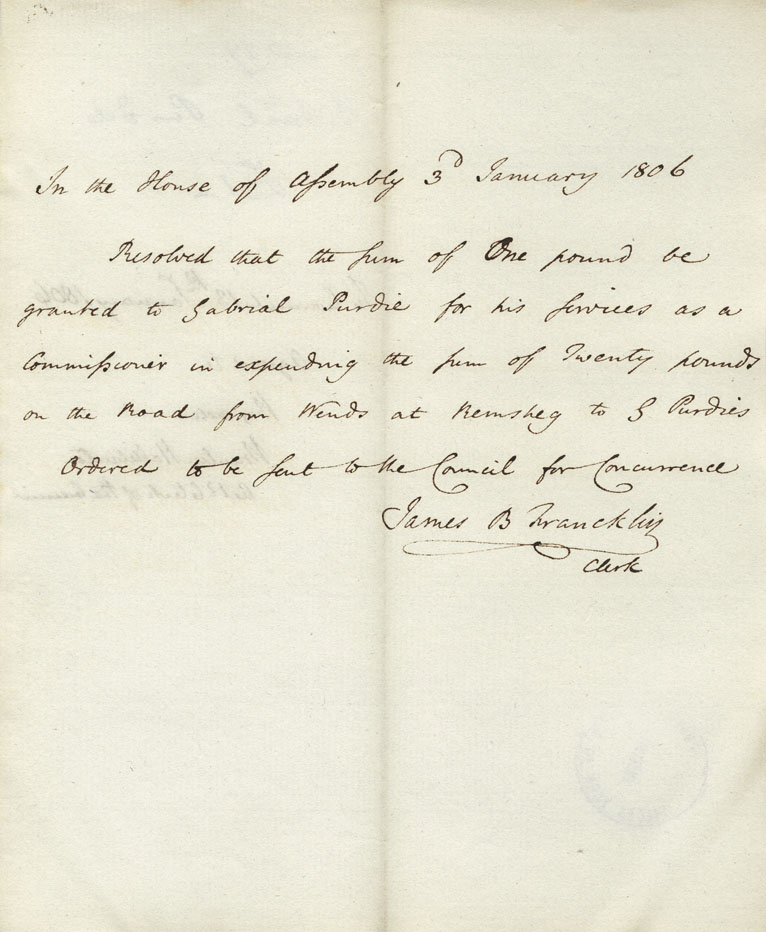 In the House of Assembly 3d January 1806
Resolved that the sum of One pound be
granted to Gabrial Purdie for his services as a
Commissioner in expending the sum of Twenty pounds
on the Road from Wends at Remsheg to G Purdies
Ordered to be sent to the Council for Concurrence
James B Franckling
Clerk